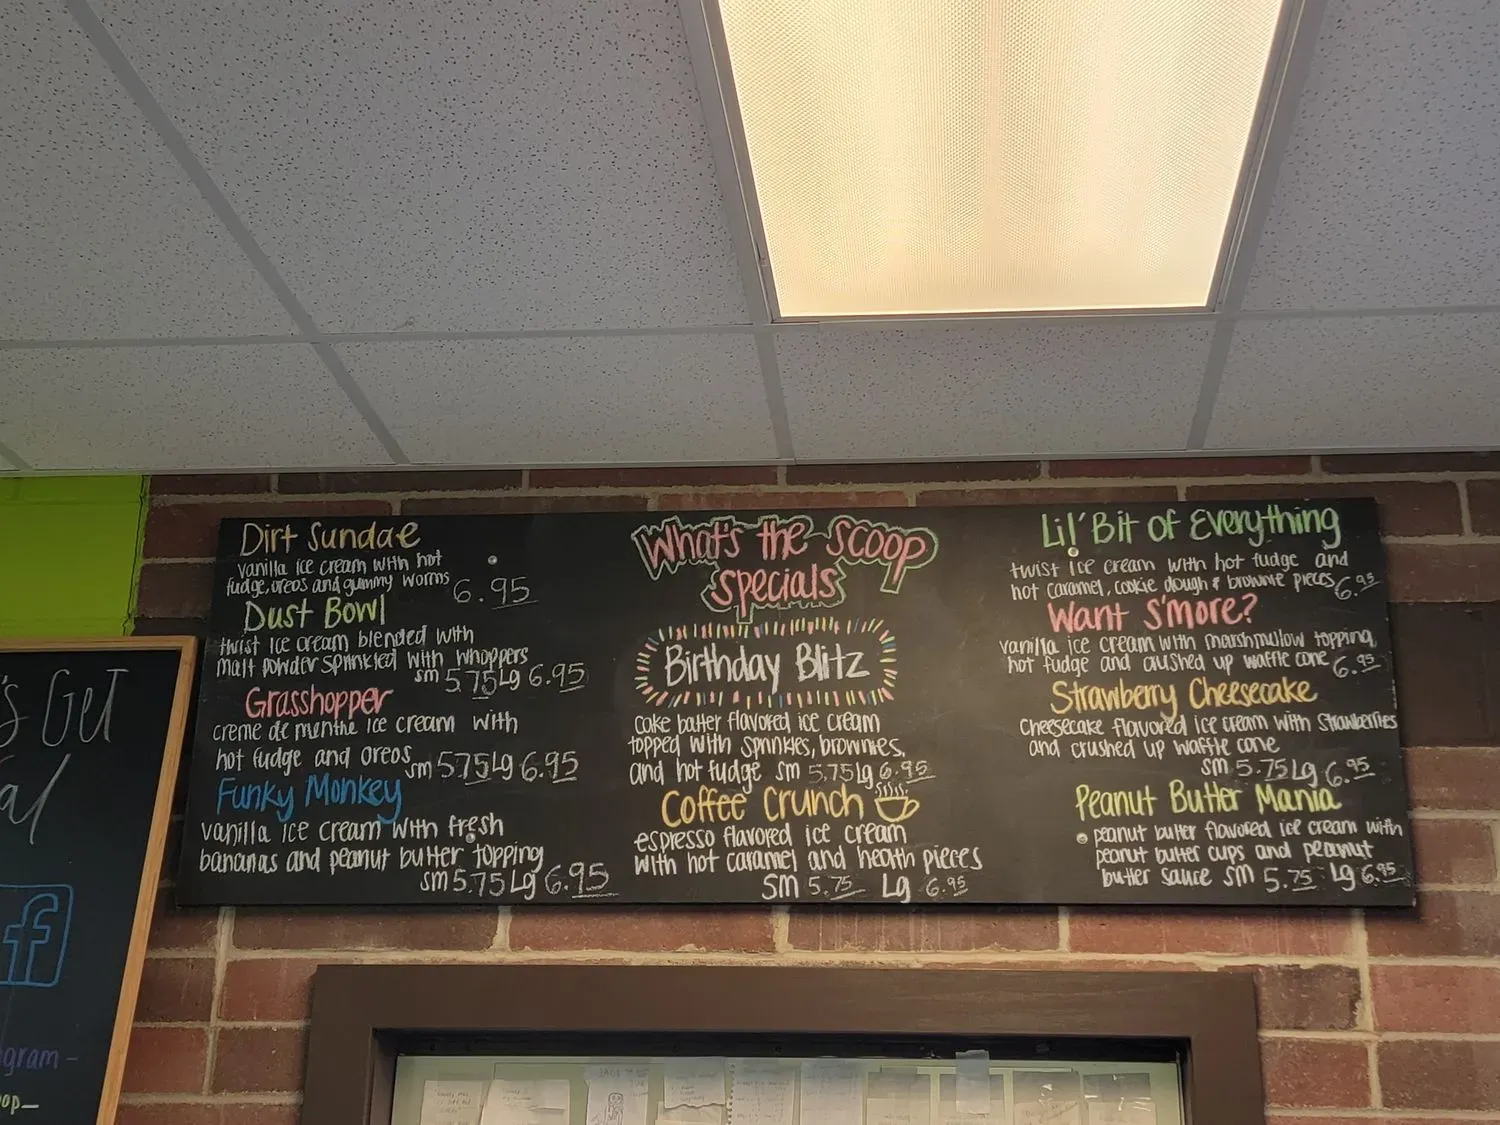 Dirt Sundae
vanilla ice cream with hot
fudge, oreos and gummy worms 6.95
Dust Bowl
twist ice cream blended with
malt powder sprinkled with whoppers
sm 5.75 Lg 6.95
Grasshopper
creme de menthe ice cream with
hot fudge and oreos
sm 5.75 Lg 6.95
Funky Monkey
vanilla ice cream with fresh
bananas and peanut butter topping
sm 5.75 Lg 6.95
What's the Scoop
specials
Birthday Blitz
cake batter flavored ice cream
topped with sprinkles, brownies,
and hot fudge sm 5.75 Lg 6.95
Coffee Crunch
espresso flavored ice cream
with hot caramel and heath pieces
Sm 5.75 Lg 6.95
Lil' Bit of Everything
twist ice cream with hot fudge and
hot caramel, cookie dough & brownie pieces 6.95
Want S'more?
vanilla ice cream with marshmulow topping,
hot fudge and crushed up waffle cone 6.95
Strawberry Cheesecake
Cheesecake flavored ice cream with Strawberries
and crushed up waffle cone
sm 5.75 Lg 6.95
Peanut Butter Mania
peanut butter flavored ice cream with
peanut butter cups and peanut
butter sauce sm 5.75 Lg 6.95
's Get
al
f
gram -
oop-